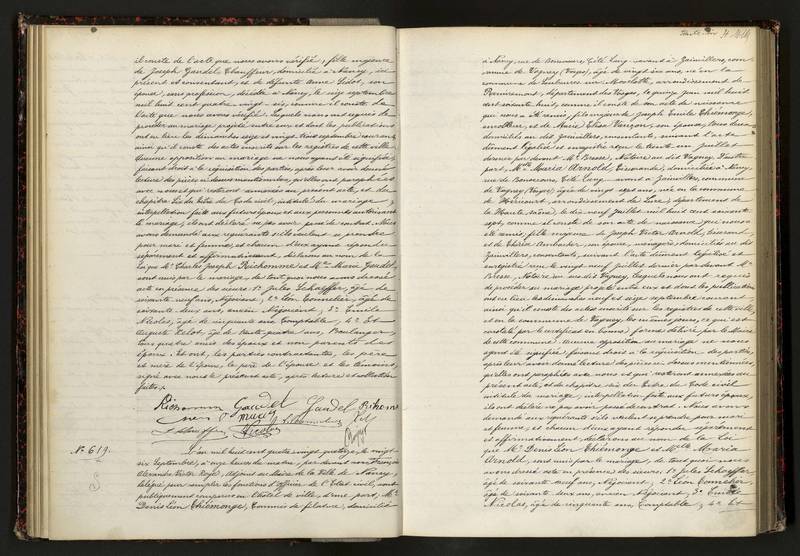 il conste de l'acte que nous avons vérifié; fille majeure
de Joseph Gaudel Chauffeur, domicilié à Nancy, ici
présent et consentant, et de défunte Anne Sidot, son
épouse, sans profession, décédée à Nancy, le sept septembre
mil huit cent quatre vingt-six, comme il conste de
l'acte que nous avons vérifié. Lesquels nous ont requis de
procéder au mariage projeté entre eux et dont les publications
ont eu lieu les dimanches seize et vingt trois septembre courant,
ainsi qu'il conste des actes inscrits sur les registres de cette ville.
Aucune opposition au mariage ne nous ayant été signifiée,
faisant droit à la réquisition des parties, après leur avoir donné
lecture des pièces ci-dessus mentionnées, qu'elles ont paraphées
avec nous et qui resteront annexées au présent acte, et du
chapitre six du titre du Code civil, intitulé du mariage;
interpellation faite aux futurs époux et aux personnes autorisant
le mariage, ils ont déclaré ne pas avoir passé de contrat. Nous
avons demandé aux requérants s'ils veulent se prendre
pour mari et femme, et chacun d'eux ayant répondu
séparément et affirmativement, déclarons au nom de la
Loi que Mr Charles Joseph Richomme et Mlle Marie Gaudel,
sont unis par le mariage, de tout quoi nous avons dressé
acte en présence des sieurs: 1° Jules Schaeffer, âgé de
soixante neuf ans, Négociant; 2° Léon Connelier, âgé de
soixante deux ans, ancien Négociant; 3° Emile
Nicolas, âgé de cinquante ans, Comptable; 4° Et
Auguste Pelot, âgé de trente quatre ans, Boulanger
tous quatre amis des époux et non parents des
époux. Et ont, les parties contractantes, les père
et mère de l'époux, le père de l'épouse et les témoins,
signé avec nous le présent acte, après lecture et collation
faites.
Richomme Gaudel Gaudel Richomme
Marie
Nicolas
N° 619.
L'an mil huit cent quatre vingt quatorze, le vingt
six Septembre, à onze heures du matin, par devant nous François
Alexandre Victor Royé, Adjoint au Maire de la Ville de Nancy,
délégué pour remplir les fonctions d'officier de l'Etat civil, sont
publiquement comparus en l'hôtel de ville, d'une part, Mr
Denis Léon Thiémonge, Commis de filature, domicilié
à Nancy, rue de Bonsecours, Cité Lang avant à Zainvillers, commune
de Vagney (Vosges), âgé de vingt six ans, né en la
commune de Saulxures sur Moselotte, arrondissement de
Remiremont, département des Vosges, le quinze Juin mil huit
cent soixante huit, comme il conste de son acte de naissance
que nous a été remis; fils majeur de Joseph Emile Thiémonge,
et de Marie
domiciliés au dit Zainvillers, consentants, suivant l'acte
dûment légalisé et enregistré reçu le trente un Juillet
dernier par devant Me Bresse, Notaire au dit Vagney. D'autre
part, Mlle Maria Arnold, Tisserande, domiciliée à Nancy,
rue de Bonsecours, Cité Lang avant à Zainvillers, commune
de Vagney (Vosges) âgée de vingt sept ans, née en la commune
de Héricourt, arrondissement de Lure, département de
la Haute Saône, le dix neuf Juillet mil huit cent soixante
sept, comme il conste de son acte de naissance que nous
a été remis; fille majeure de Joseph Victor Arnold, Tisserand,
et de Thérèse Ambacher, son épouse, ménagère, domiciliés au dit
Zainvillers, consentants, suivant l'acte dûment légalisé et
enregistré reçu le vingt neuf Juillet dernier par devant Me
Bresse, Notaire au sus dit Vagney. Lesquels nous ont requis
de procéder au mariage projeté entre eux et dont les publications
ont eu lieu les dimanches neuf et seize septembre courant,
ainsi qu'il conste des actes inscrits sur les registres de cette ville,
et en la commune de Vagney, les mêmes jours, ce qui est
constaté par le certificat en bonne forme délivré par le Maire
de cette commune. Aucune opposition au mariage ne nous
ayant été signifiée, faisant droit à la réquisition des parties,
après leur avoir donné lecture des pièces ci-dessus mentionnées,
qu'elles ont paraphées avec nous et qui resteront annexées au
présent acte, et du chapitre six du titre du Code civil
intitulé du mariage, interpellation faite aux futurs époux,
ils ont déclaré ne pas avoir passé de contrat. Nous avons
demandé aux requérants s'ils veulent se prendre pour mari
et femme, et chacun d'eux ayant répondu séparément
et affirmativement, déclarons au nom de la Loi
que Mr Denis Léon Thiémonge et Mlle Maria
Arnold, sont unis par le mariage, de tout quoi nous
avons dressé acte en présence des sieurs: 1° Jules Schaeffer,
âgé de soixante neuf ans, Négociant; 2° Léon Connelier,
âgé de soixante deux ans, ancien Négociant; 3° Emile
Nicolas, âgé de cinquante ans, Comptable; 4° Et